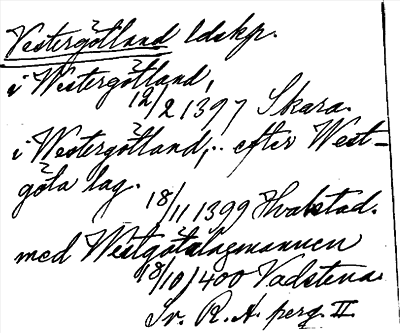 Vestergötland ldskp.
i Westergötland,
12/2 1397 Skara.
i Westergötland,.. efter West-
göta lag.
18/11 1399 Hvalstad.
med Westgötalagmannen
18/10 1400 Vadstena.
Sv. R. A. perg. II